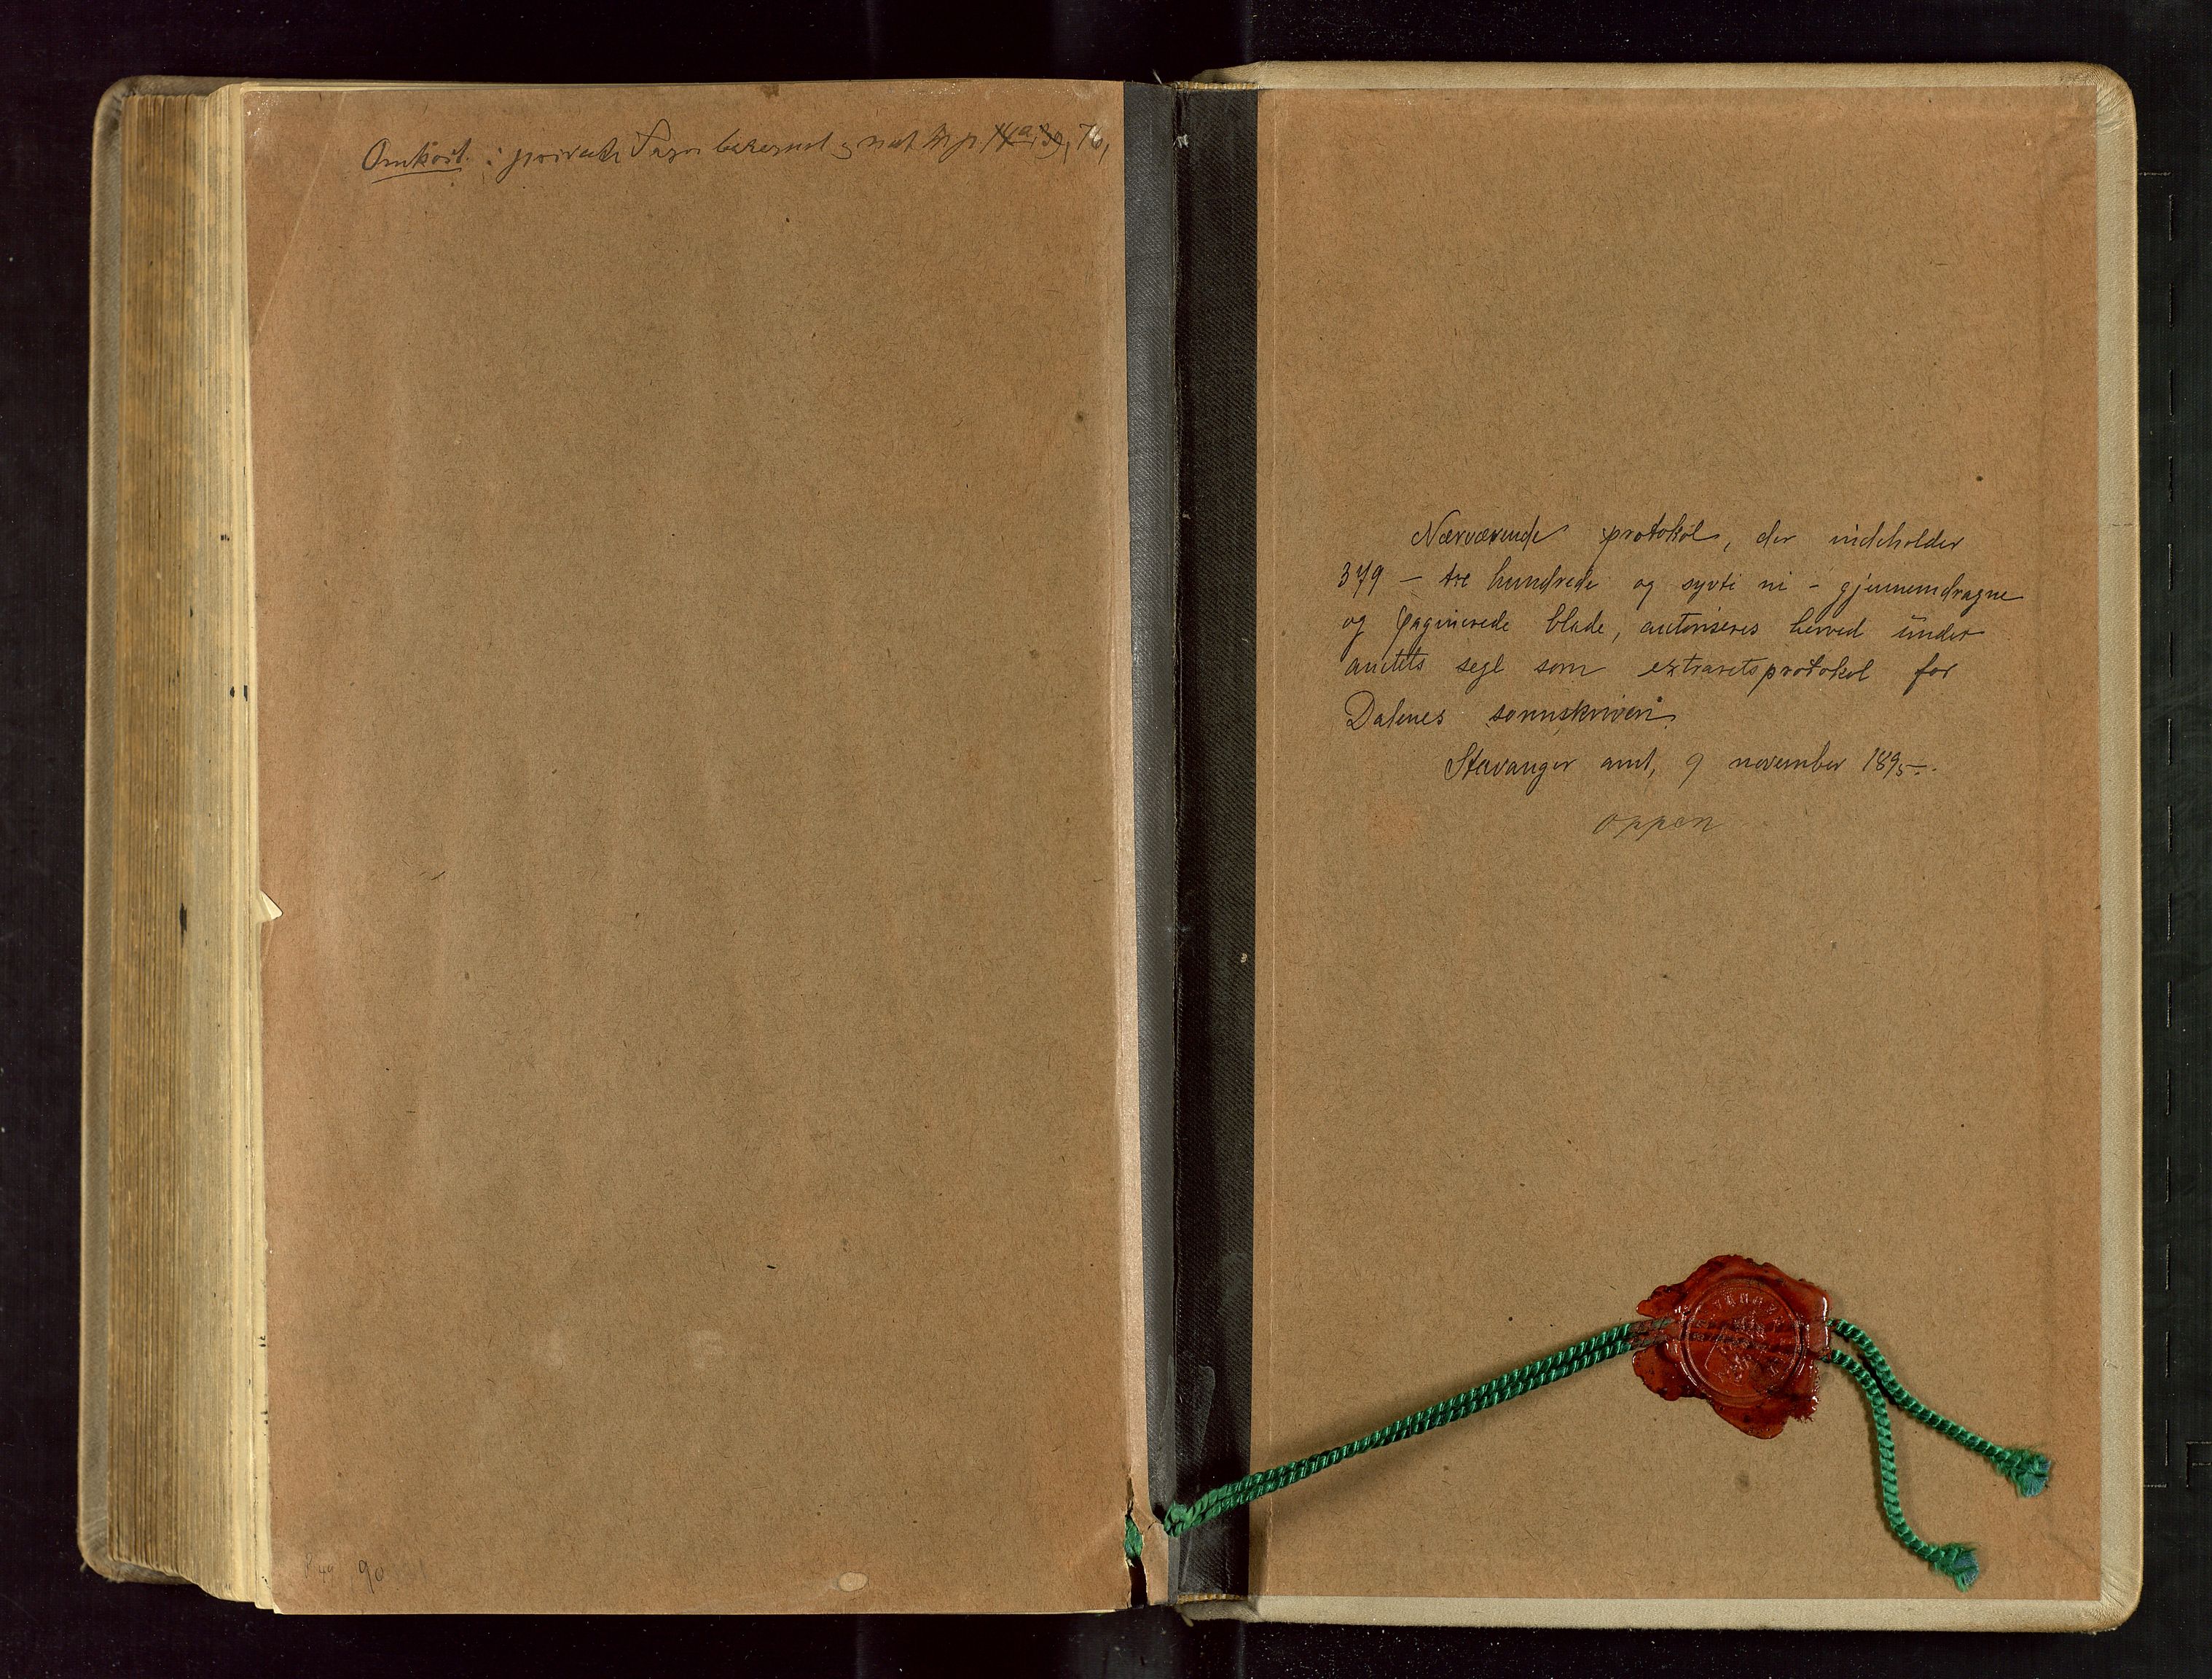 Omkost. i private Sager
76,
Nærværende protokol, der indeholder
379 – tre hundrede og sytti ni – gjennemdragne
og paginerede blade, autoriseres herved under
amtets segl som extraretsprotokol for
Dalenes sorenskriveri.
Stavanger amt, 9 november 1895.
Oppen
90